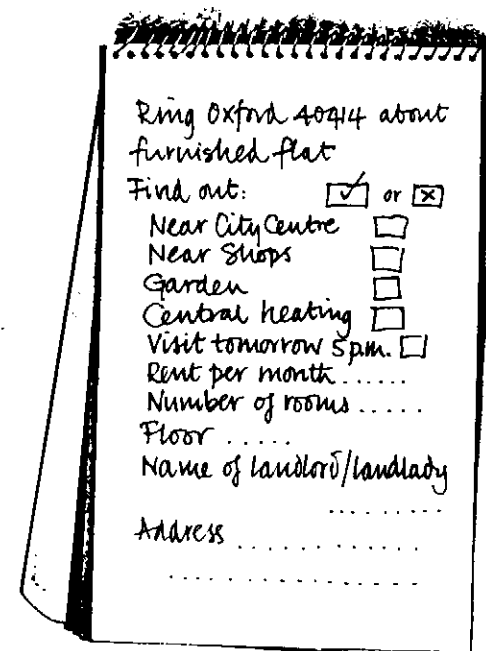 Ring Oxford 40414 about
furnished flat
Find out: ☑ or ☒
Near City Centre ☐
Near Shops ☐
Garden ☐
Central heating ☐
Visit tomorrow 5 p.m. ☐
Rent per month ......
Number of rooms .....
Floor .....
Name of landlord/landlady
.........
Address ............
.................